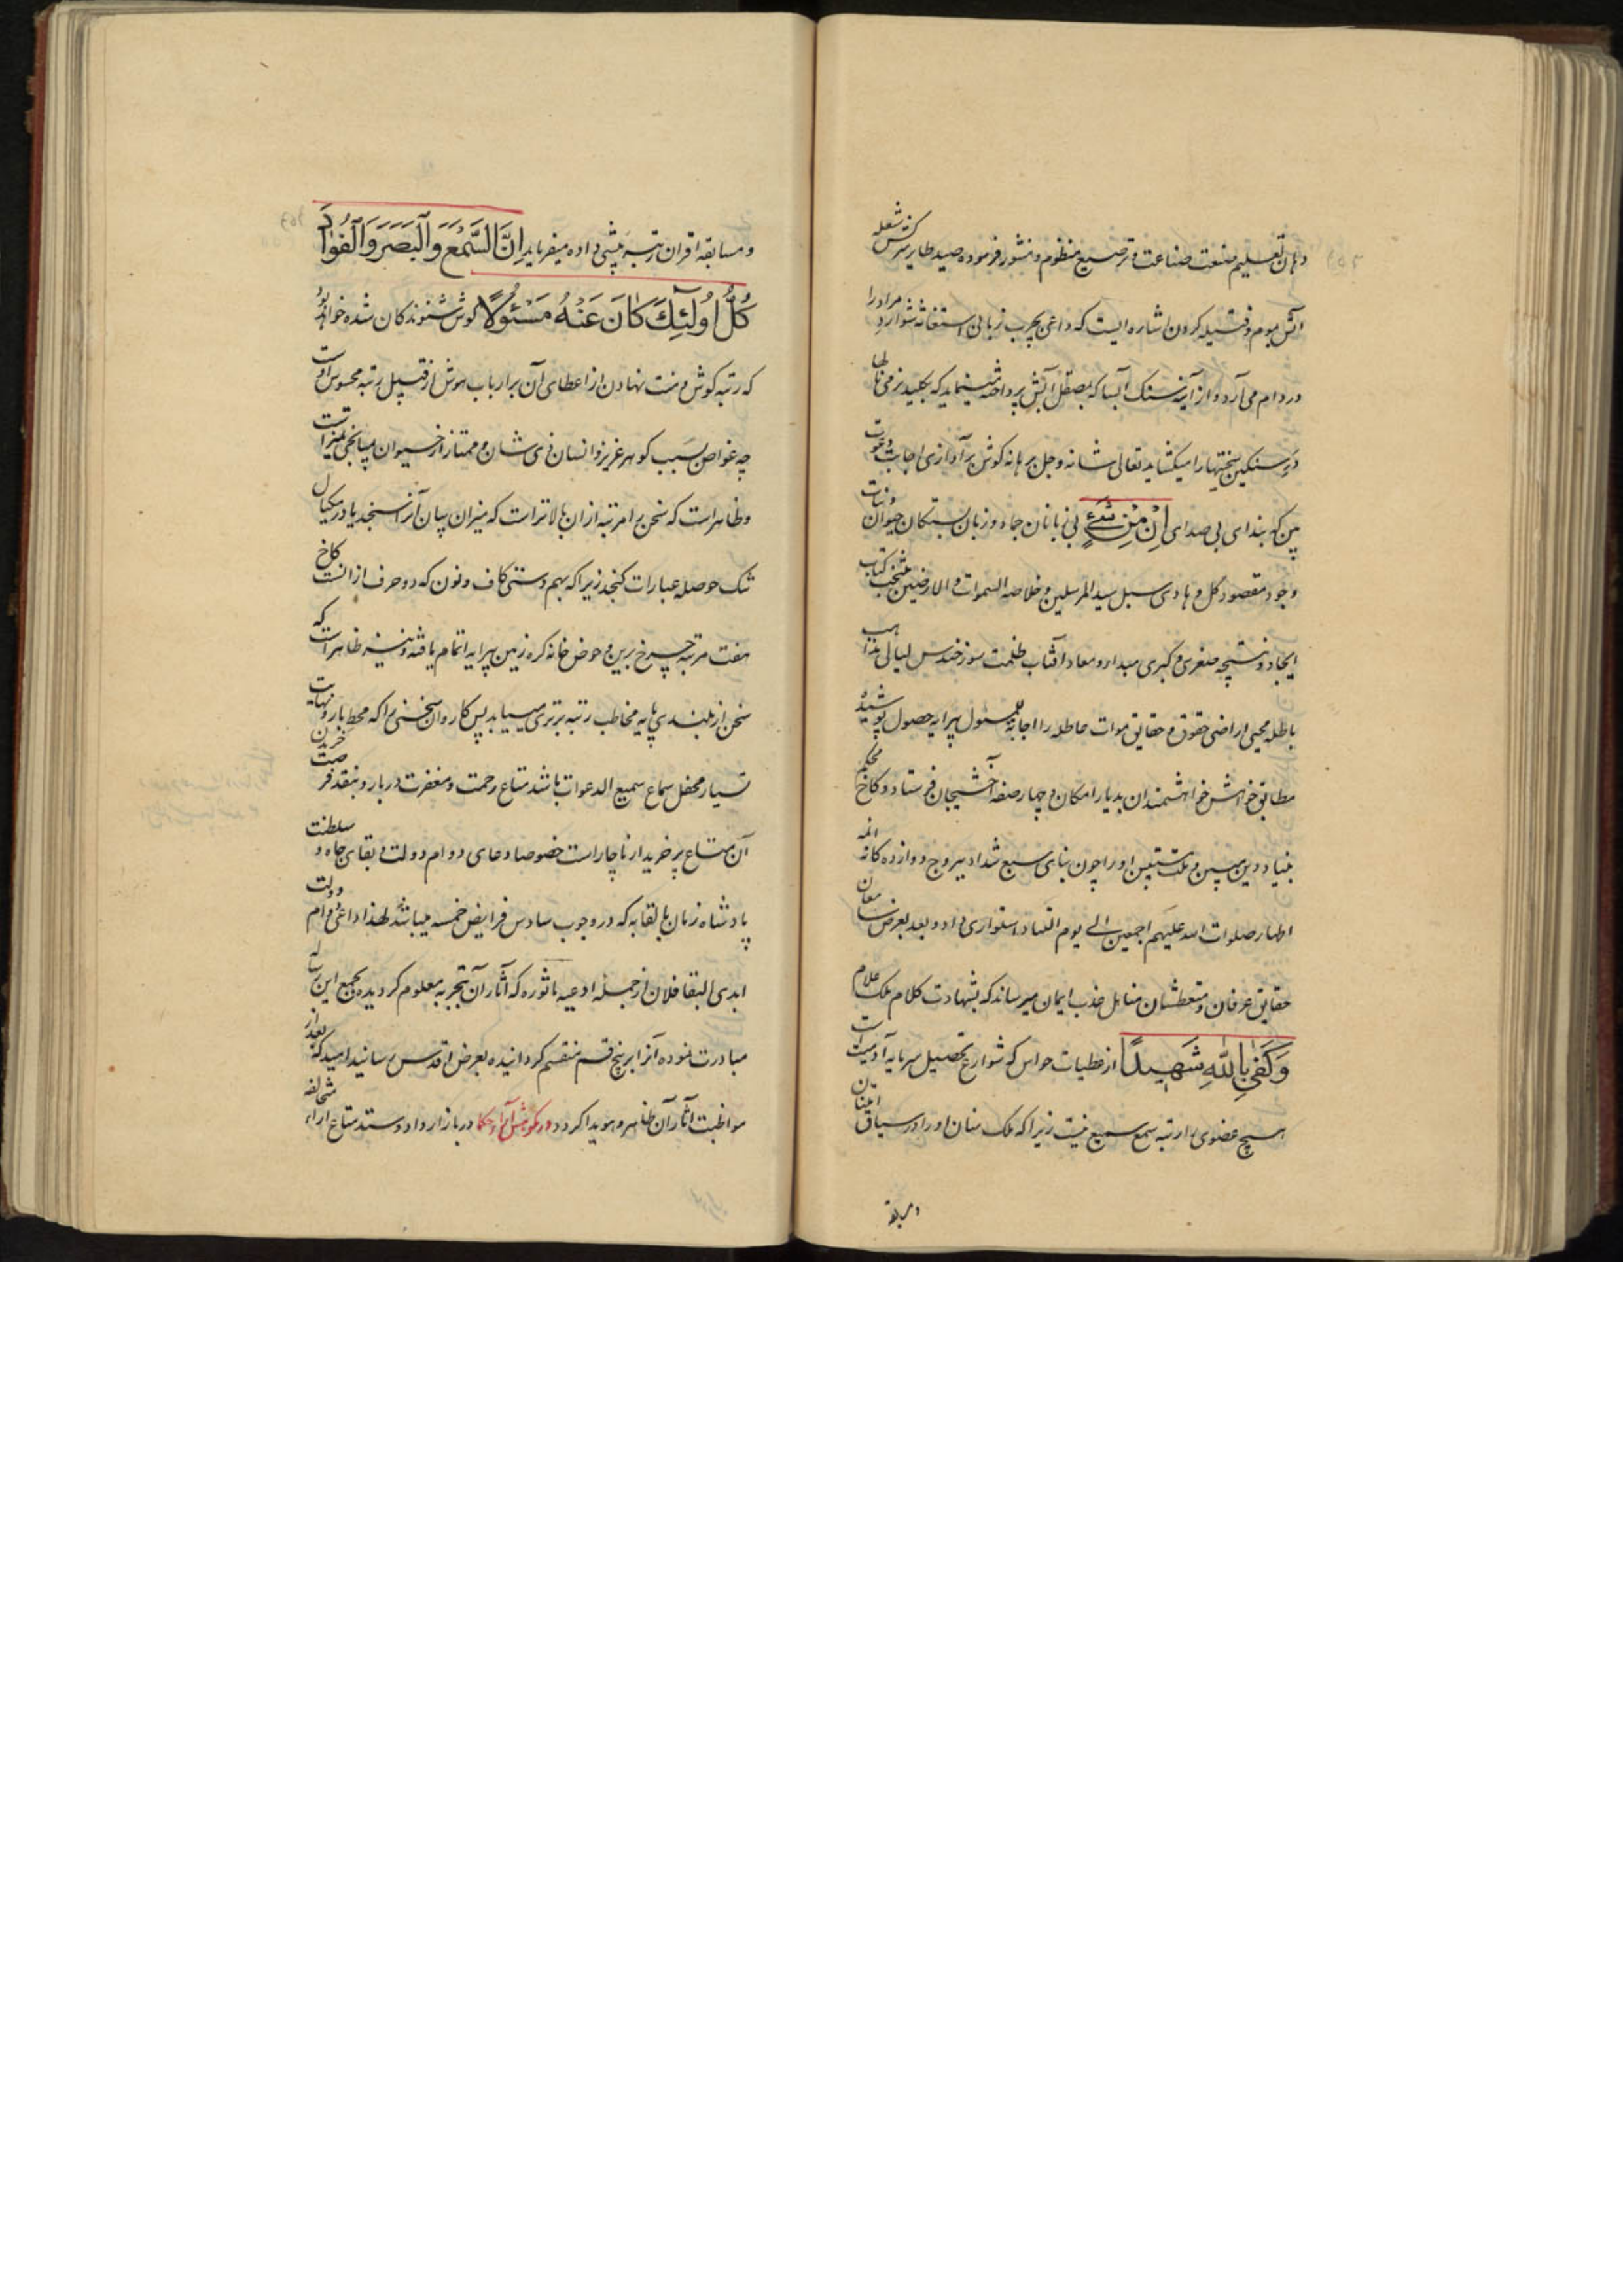 دهان تعلیم صنعت صناعت و ترصیع منظوم و منثور فرموده صید طایر سرکش شعله
آتش بموم و فتیله کردن اشاره ایست که داعی بچرب زبانی استغاثه شوارد مراد را
در دام می آرد و از آینه سنک آنسا که بصقل آتش پرداخته مینماید که بکلید نرمی نالها
در سنکین سختیها را میکشاید تعالی شانه و جل برهانه کوش بر آوازی اجابت دعوت
بین که بندای بی صدای اِنْ مِنْ شَیْءٍ بی زبانان جماد و زبان بستکان حیوان و نبات
وجود مقصود کل و هادی سبل سید المرسلین و خلاصه السموات و الارضین منتخب کتاب
ایجاد و نتیجه صغری و کبری مبدا و معاد آفتاب ظلمت سوز خندس لیالی مذاهب
باطله محیی اراضی حقوق و حقایق موات عاطله را اجابة للمسئول پیرایه حصول پوشیده
مطابق خواهش خواهشمندان بدیار امکان و چهار صفه آخشیجان فرستاد و کاخ محکم
بنیاد دین مبین و ملت متین او را چون بنای سبع شداد ببروج دوازده کانه ائمه
اطهار صلوات الله علیهم اجمعین الی یوم التناد استواری داد و بعد بعرض سامعان
حقایق عرفان و متعطشان مناهل عذب ایمان میرساند که بشهادت کلام ملک علام
وَكَفَىٰ بِاللَّهِ شَهِيدًا از عطیات حواس که شوارع تحصیل سرمایه آدمیت است
هیچ عضوی را رتبه سمع سمیع نیست زیرا که ملک منان او را در سیاق امتنان
و مسابقه
و مسابقه اقران رتبه پیشی داده میفرماید اِنَّ السَّمْعَ وَالْبَصَرَ وَالْفُؤَادَ
كُلُّ اُولَٰئِكَ كَانَ عَنْهُ مَسْئُولًا کوش شنوندکان شده خواهد بود
که رتبه کوش و منت نهادن از اعطای آن بر ارباب هوش از قبیل رتبه محسوس است
چه غواص بسبب کوهر عزیز و انسان ذی شان و ممتاز از حیوان میانجی تمیز است
و ظاهر است که سخن را مرتبه از ان بالاتر است که میزان بیان آنرا سنجد یا در مکیال
تنک حوصله عبارات کنجد زیرا که بهم دستی کاف و نون که دو حرف از انست کاخ
هفت مرتبه چرخ برین و حوض خانه کره زمین پیرایه اتمام یافته و نیز ظاهر است که
سخن از بلندی پایه مخاطب رتبه برتری میبابد پس کاروان سخنی را که محط بار و نهایت
تسیار محفل سماع سمیع الدعوات باشد متاع رحمت و مغفرت در بار و بنقد فرصت خریدن
آن متاع بر خریدار ناچار است خصوصا دعای دوام دولت و بقای جاه و سلطنت
پادشاه زمان بالقابه که در وجوب سادس فرایض خمسه میباشد لهذا داعی دوام دولت
ابدی البقا فلان از جمله ادعیه ماثوره که آثار آن بتجربه معلوم کردیده بجمع این رساله
مبادرت نموده آنرا بر پنج قسم منقسم کردانیده بعرض اقدس رسانید امید که بعد از
مواظبت آثار آن ظاهر و هویدا کردد در نکوهش آراء حکما در بازار داد و ستد متاع اراء مختلفه